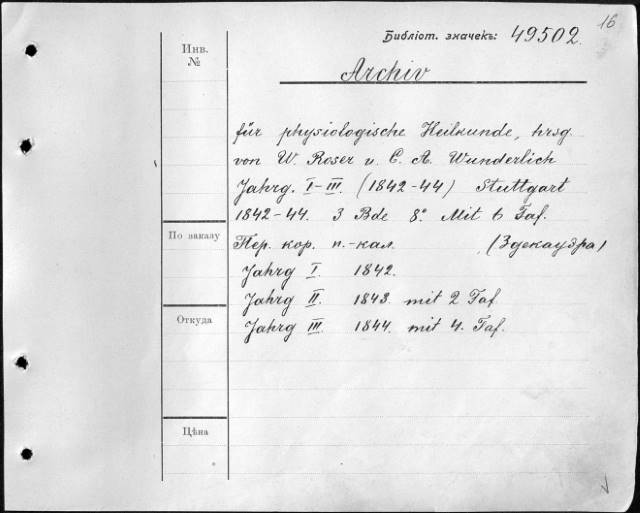 16
Библіот. значекъ: 49502.
Инв.
№
Archiv
für physiologische Heilkunde, hrsg.
von W. Roser u. C. A. Wunderlich
Jahrg. I-III. (1842-44) Stuttgart
1842-44. 3 Bde 8°. Mit 6 Taf.
По заказу
Пер. кор. п.-кал. (Здекауэра)
Jahrg I. 1842.
Jahrg II. 1843. mit 2 Taf.
Откуда
Jahrg III. 1844. mit 4. Taf.
Цѣна